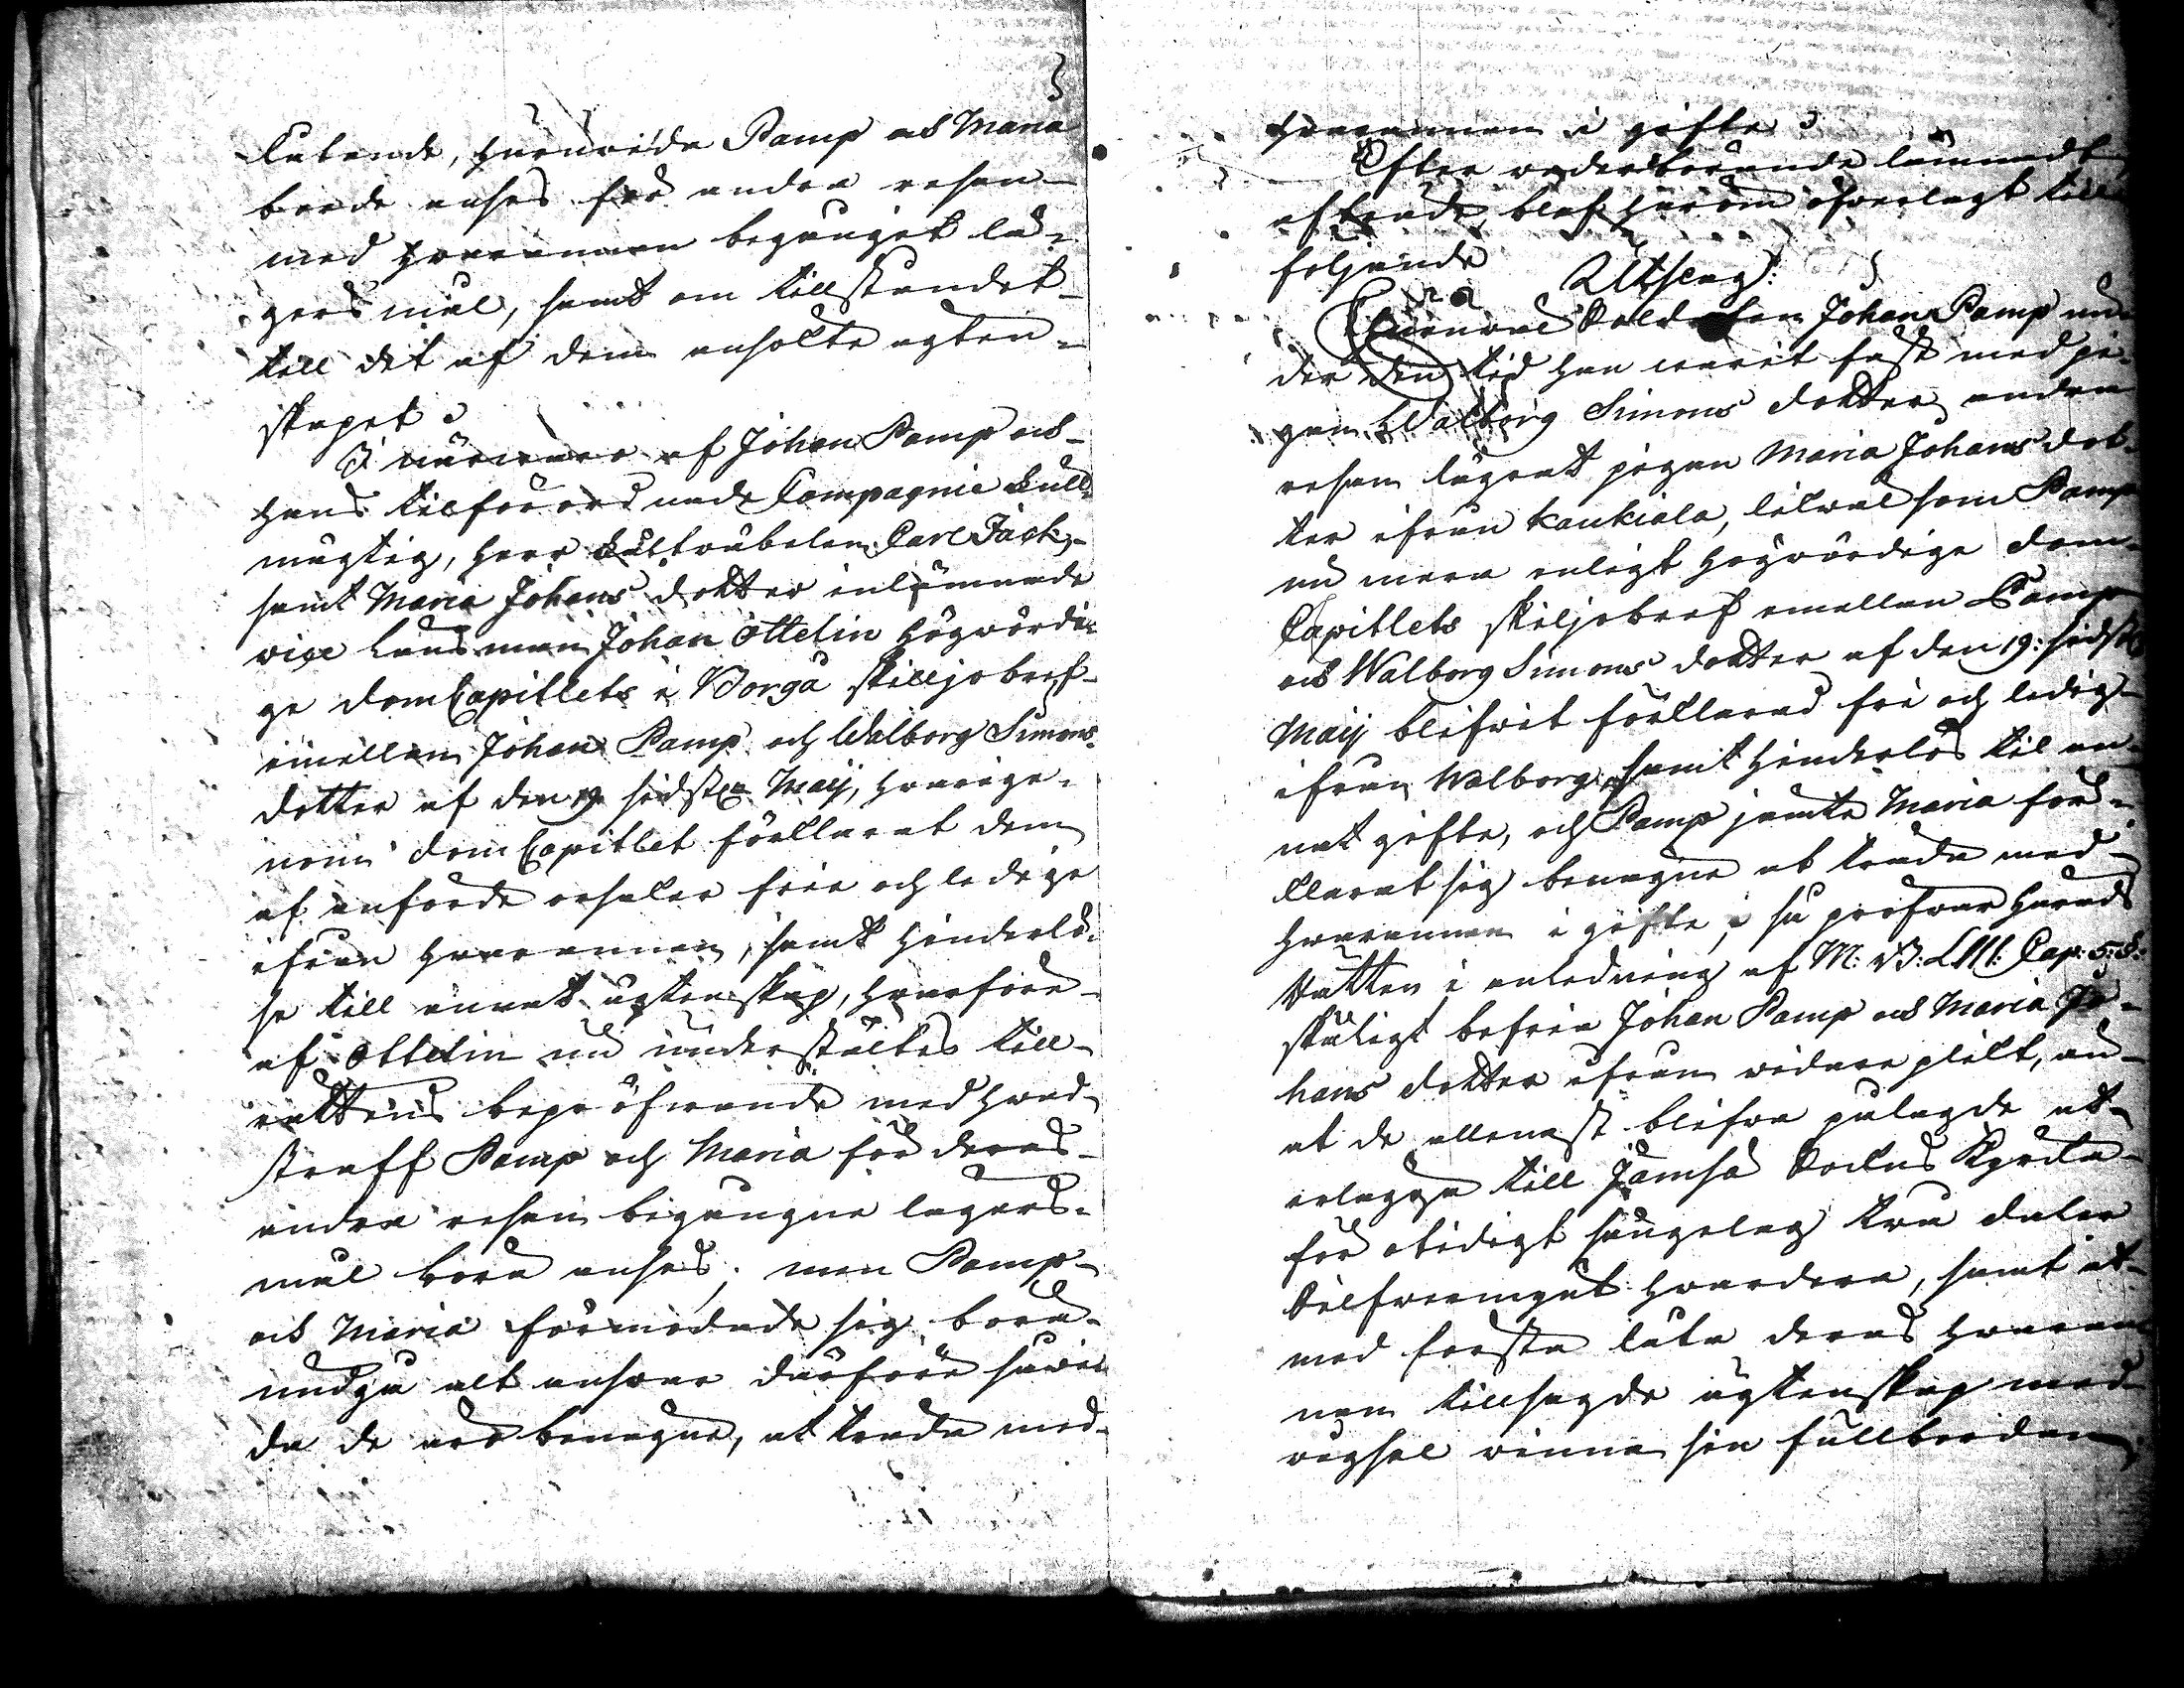 lutande, huruvida Pamp och Maria
borde anses för andra resan
med hvarannan begånget lä-
gersmål, samt om tillståndet
till det af dem ansökte ägten-
skapet.
I närvaro af Johan Pamp och
hans tilförordnade Compagnie full-
mägtig, herr Carl Jack,
samt Maria Johans dotter inlämnade
vice Länsman Johan Ottelin Högvördi-
ge DomCapitlets i Borgå skilljobref
emellan Johan Pamp och Walborg Simons
dotter af den 19 sidstl. Maij, hvarige-
nom DomCapitlet förklarat dem
af anförde orsaker frie och ledige
ifrån hvarannan, samt hinderlö-
se till annat ägtenskap, hvarföre
af Ottelin nu understältes till
rättens bepröfvande med hvad
straff Pamp och Maria för deras
andra resan begångne lägers-
mål böra anses; men Pamp
och Maria förmodade sig böra
undgå alt ansvar därföre såvi-
da de äro benägne, at träda med
hvarannan i gifte.
Efter vederbörande lämnadt
afträde, blef härom öfverlagt till
följande
Utslag:
Ehuruväl Soldaten Johan Pamp un-
der den tid han varit fäst med pi-
gan Walborg Simons dotter, andra
resan lägrat pigan Maria Johans dot-
ter ifrån Kaukiala, likväl som Pamp
nu mera enligt Högvördige Dom-
Capitlets skiljobref emellan Pamp
och Walborg Simons dotter af den 19: sidstl.
Maij blifvit förklarad fri och ledig
ifrån Walborg, samt hinderlös til an-
nat gifte, och Pamp jämte Maria för-
klarat sig benägne at träda med
hvarannan i gifte; så pröfvar Härads
Rätten i anledning af M: B: LIII: Cap: 5: §:
skäligt befria Johan Pamp och Maria Jo-
hans dotter ifrån vidare plikt, än
at de allenast blifva pålagde at
erlägga till Jämsä Sockns Kyrcka
för otidigt sängelag två daler
Silfvermynt hvardera, samt at
med första låta deras hvaran-
nan tillsagde ägtenskap med
vigsel vinna sin fullbordan.